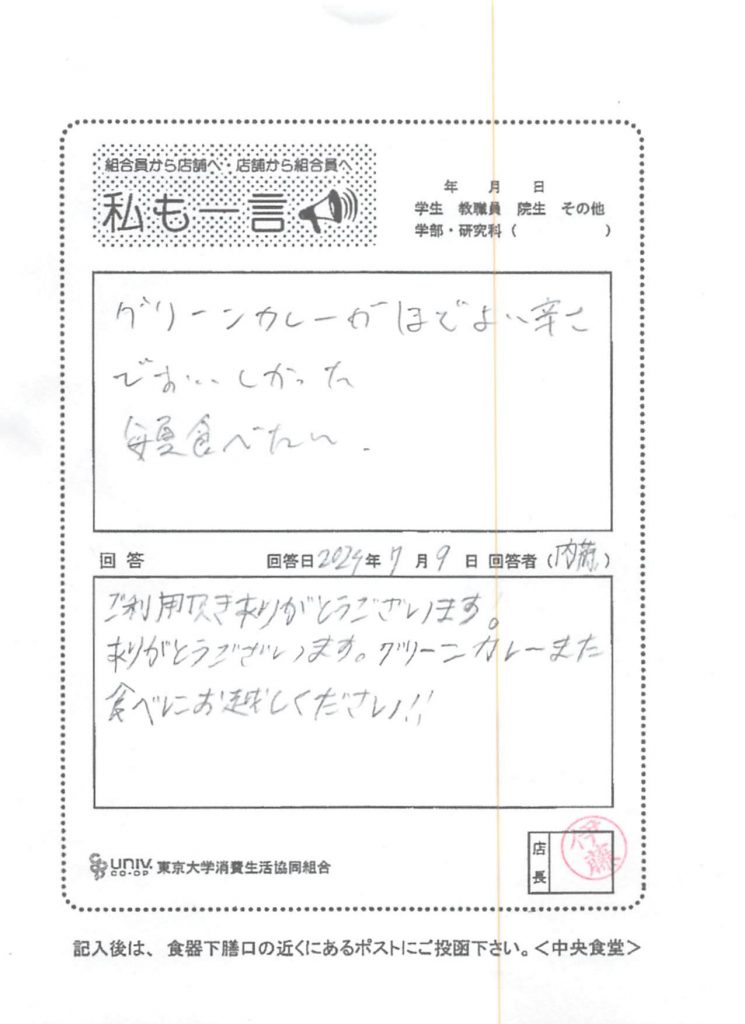 組合員から店舗へ・店舗から組合員へ
私も一言
年 月 日
学生 教職員 院生 その他
学部・研究科（ ）
グリーンカレーがほどよい辛さ
でおいしかった
毎夏食べたい.
回答 回答日2024年7月9日 回答者（内藤）
ご利用頂きありがとうございます。
ありがとうございます。グリーンカレーまた
食べにお越しください!!
UNIV.
CO-OP 東京大学消費生活協同組合
店長
伊藤
記入後は、食器下膳口の近くにあるポストにご投函下さい。＜中央食堂＞